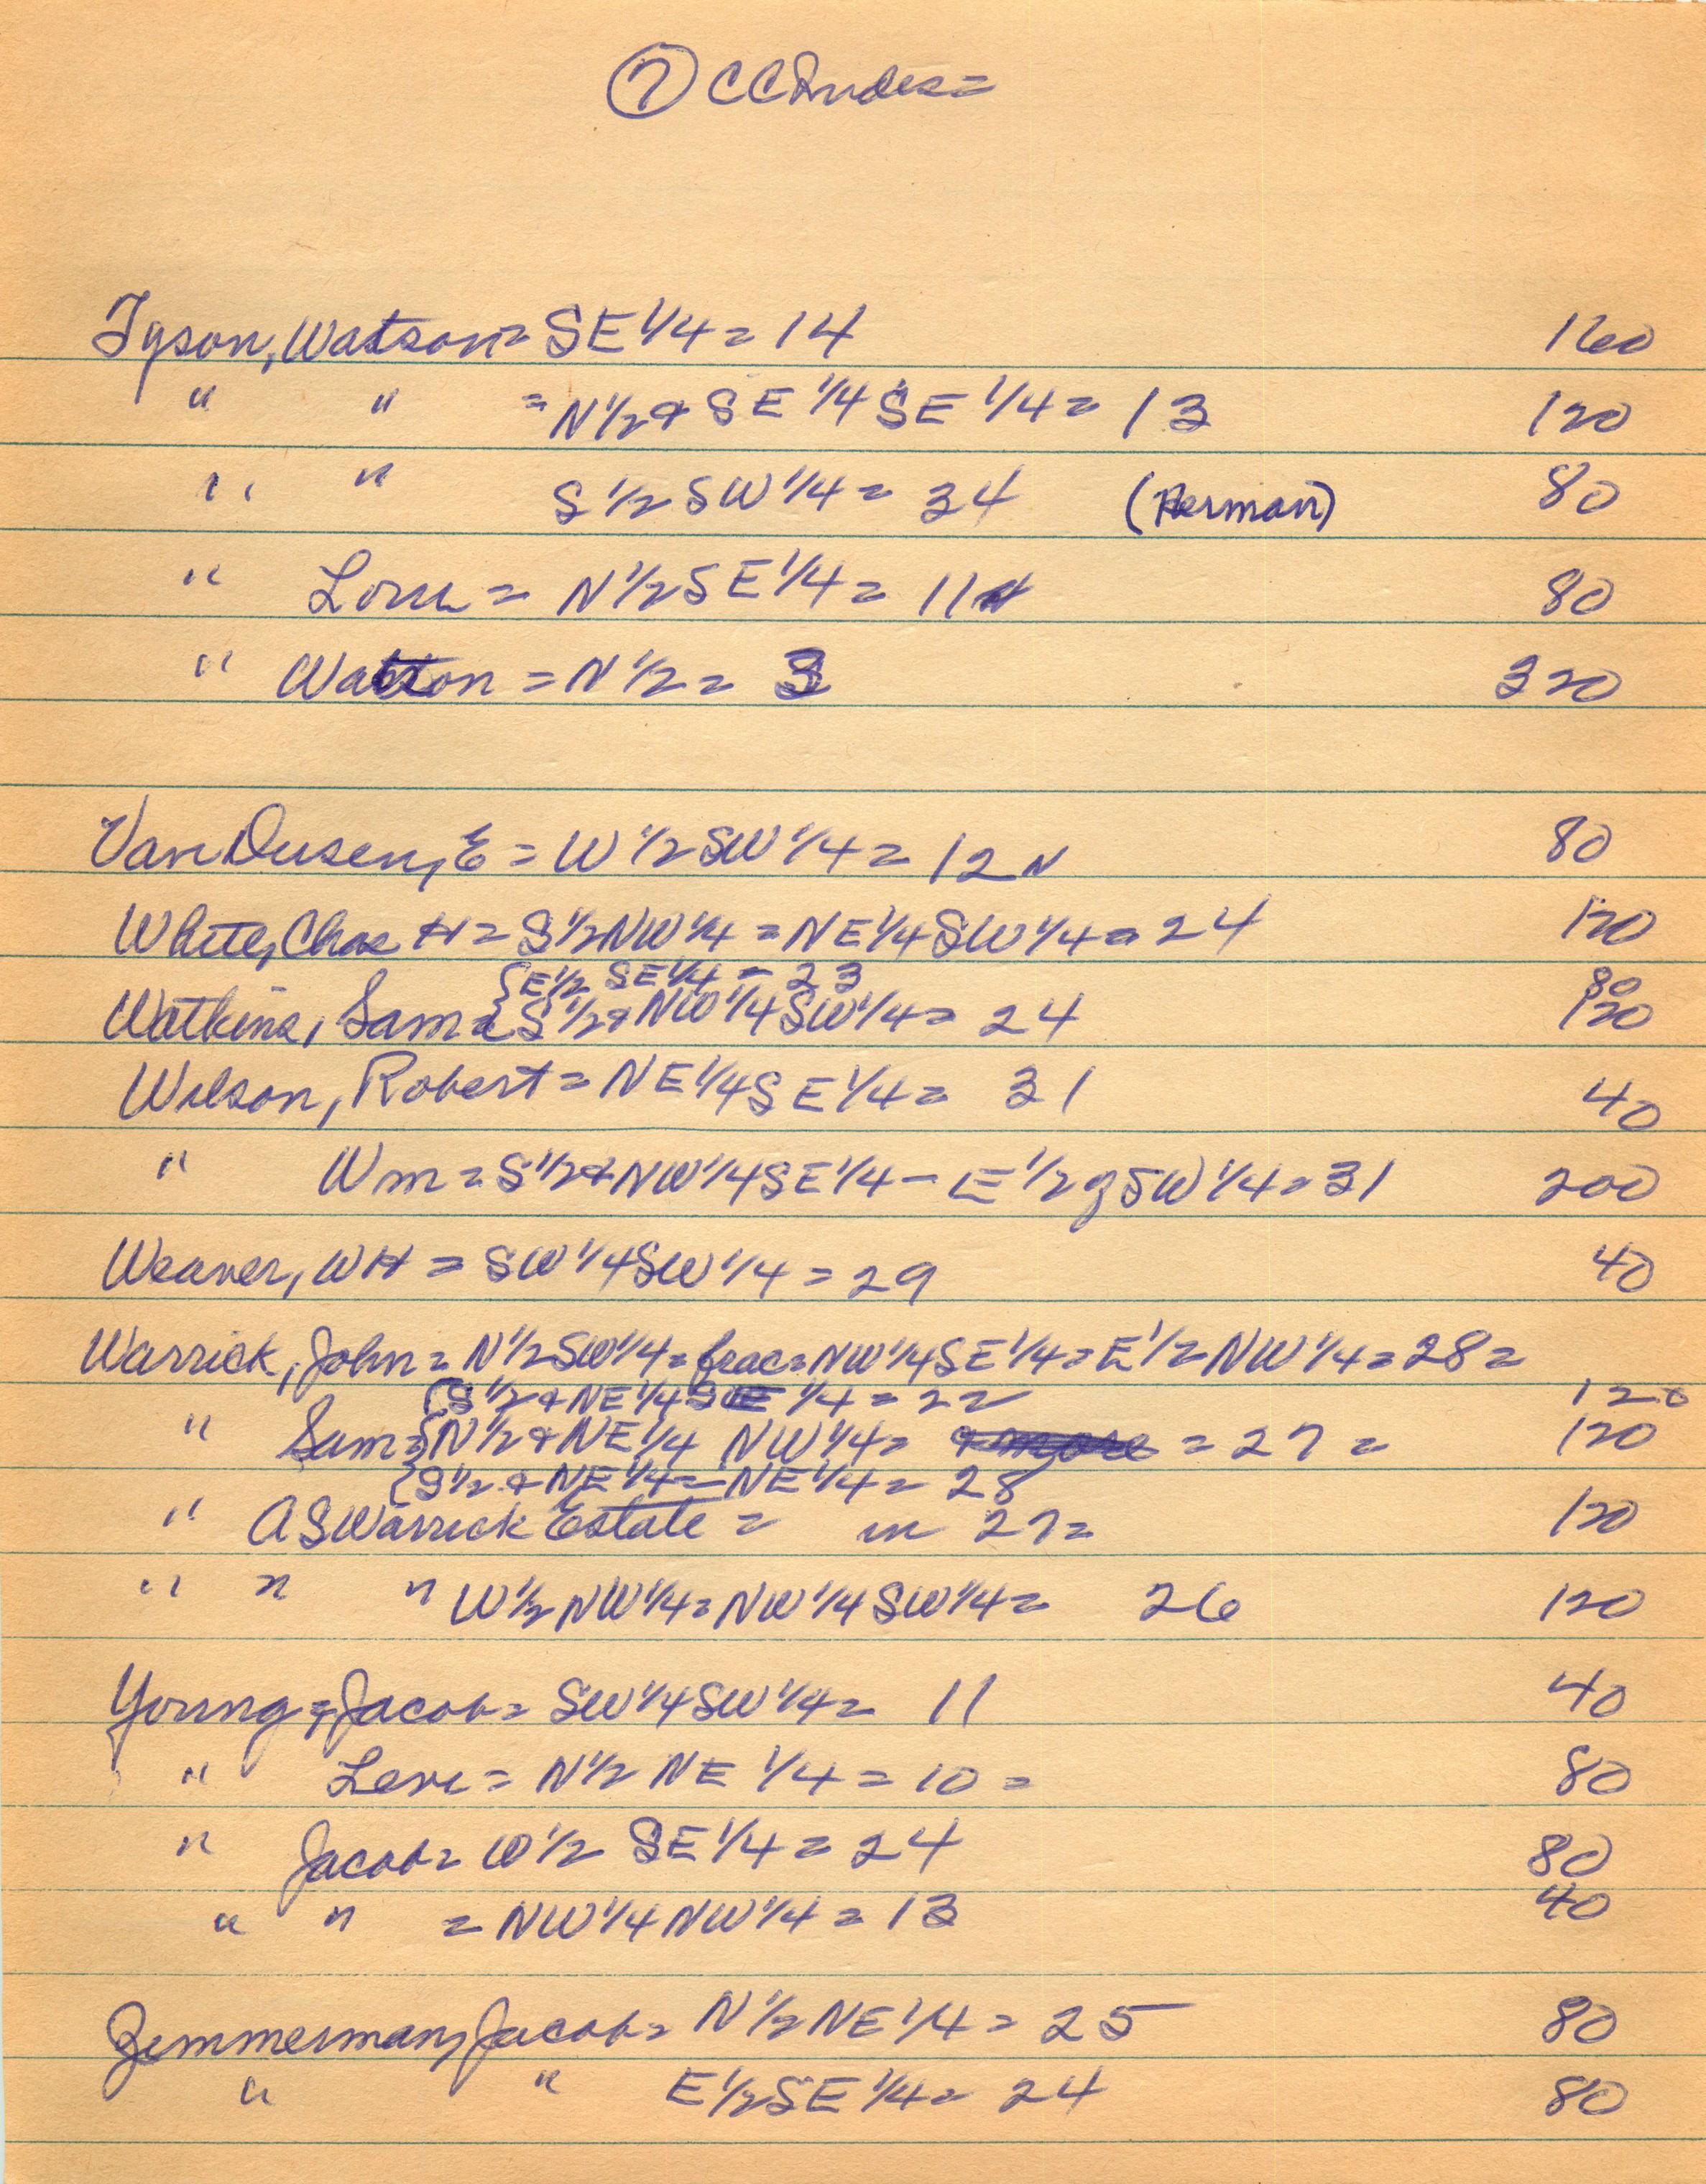 ⑦ CC Index=
Tyson, Watson= SE 1/4 = 14 160
" " = N 1/2 & SE 1/4 SE 1/4 = 13 120
" " S 1/2 SW 1/4 = 34 (Herman) 80
" = N 1/2 SE 1/4 = 11 80
" Watson = N 1/2 = 3 320
Van Dusen, E = W 1/2 SW 1/4 = 12 80
White, Chas H = S 1/2 NW 1/4 = NE 1/4 SW 1/4 = 24 120
{E 1/2 SE 1/4 = 23 80
Watkins, Sam = {S 1/2 & NW 1/4 SW 1/4 = 24 120
Wilson, Robert = NE 1/4 SE 1/4 = 31 40
" Wm = S 1/2 & NW 1/4 SE 1/4 - E 1/2 of SW 1/4 = 31 200
Weaver, WH = SW 1/4 SW 1/4 = 29 40
Warrick, John = N 1/2 SW 1/4 = frac = NW 1/4 SE 1/4 = E 1/2 NW 1/4 = 28 =
{S 1/2 & NE 1/4 1/4 = 22 120
" Sam = {N 1/2 & NE 1/4 NW 1/4 = = 27 = 120
{S 1/2 & NE 1/4 = NE 1/4 = 28
" A S Warrick Estate = in 27 = 120
" " " W 1/2 NW 1/4 = NW 1/4 SW 1/4 = 26 120
Young, Jacob = SW 1/4 SW 1/4 = 11 40
" Levi = N 1/2 NE 1/4 = 10 = 80
" Jacob = W 1/2 SE 1/4 = 24 80
" " = NW 1/4 NW 1/4 = 13 40
Zimmerman, Jacob = N 1/2 NE 1/4 = 25 80
" " E 1/2 SE 1/4 = 24 80